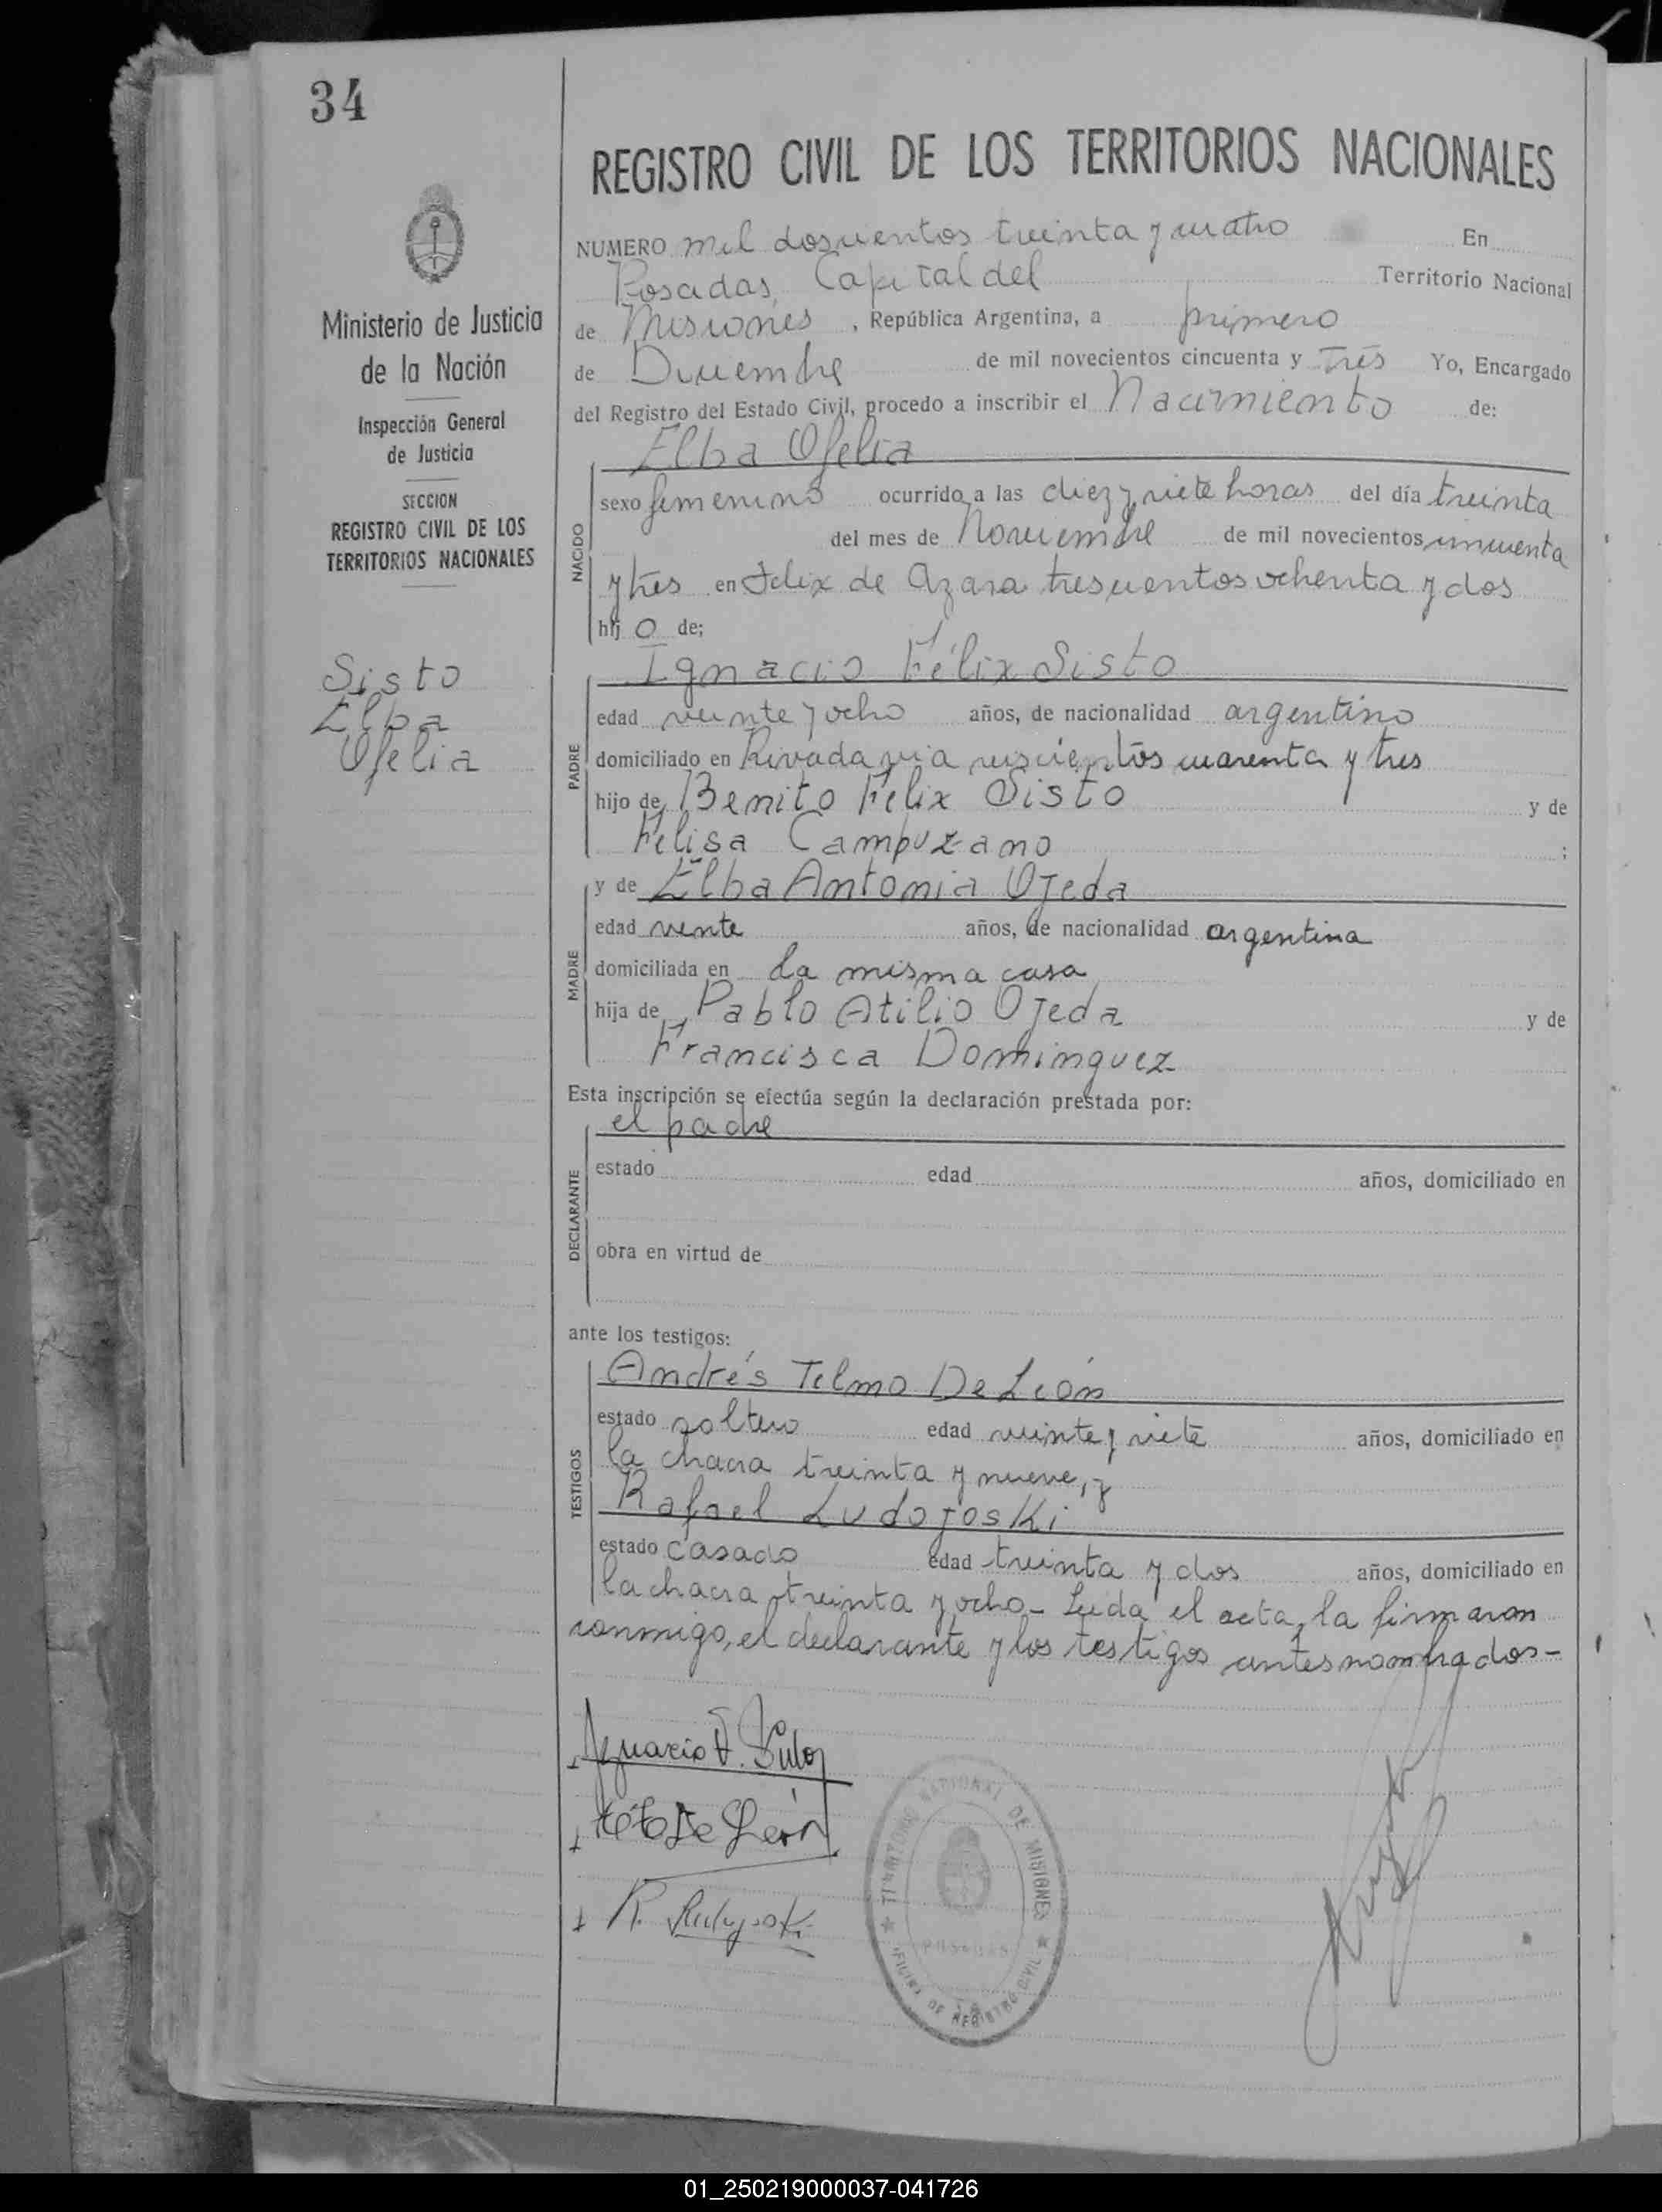 34
REGISTRO CIVIL DE LOS TERRITORIOS NACIONALES
Ministerio de Justicia
de la Nación
Inspección General
de Justicia
SECCION
REGISTRO CIVIL DE LOS
TERRITORIOS NACIONALES
Sisto
Elba
Ofelia
NUMERO mil doscientos treinta y cuatro En
Posadas, Capital del Territorio Nacional
de Misiones, República Argentina, a primero
de Diciembre de mil novecientos cincuenta y Tres Yo, Encargado
del Registro del Estado Civil, procedo a inscribir el Nacimiento de:
Elba Ofelia
NACIDO
sexo femenino ocurrido a las diez y siete horas del día treinta
del mes de Noviembre de mil novecientos cincuenta
y tres en Felix de Azara trescientos ochenta y dos
hij o de;
Ignacio Félix Sisto
PADRE
edad veinte y ocho años, de nacionalidad argentino
domiciliado en Rivadavia seiscientos cuarenta y tres
hijo de Benito Felix Sisto y de
Felisa Campuzano ;
MADRE
y de Elba Antonia Ojeda
edad veinte años, de nacionalidad argentina
domiciliada en la misma casa
hija de Pablo Atilio Ojeda y de
Francisca Dominguez
Esta inscripción se efectúa según la declaración prestada por:
el padre
DECLARANTE
estado edad años, domiciliado en
obra en virtud de
ante los testigos:
TESTIGOS
Andrés Telmo De León
estado soltero edad veinte y siete años, domiciliado en
la chacra treinta y nueve, y
Rafael Ludojoski
estado casado edad treinta y dos años, domiciliado en
la chacra treinta y ocho - Leida el acta, la firmaron
conmigo, el declarante y los testigos antes nombrados -
Ignacio F. Sisto
De León
R. Ludojoski
TERRITORIO NACIONAL DE MISIONES
POSADAS
OFICINA DE REGISTRO CIVIL
01_250219000037-041726